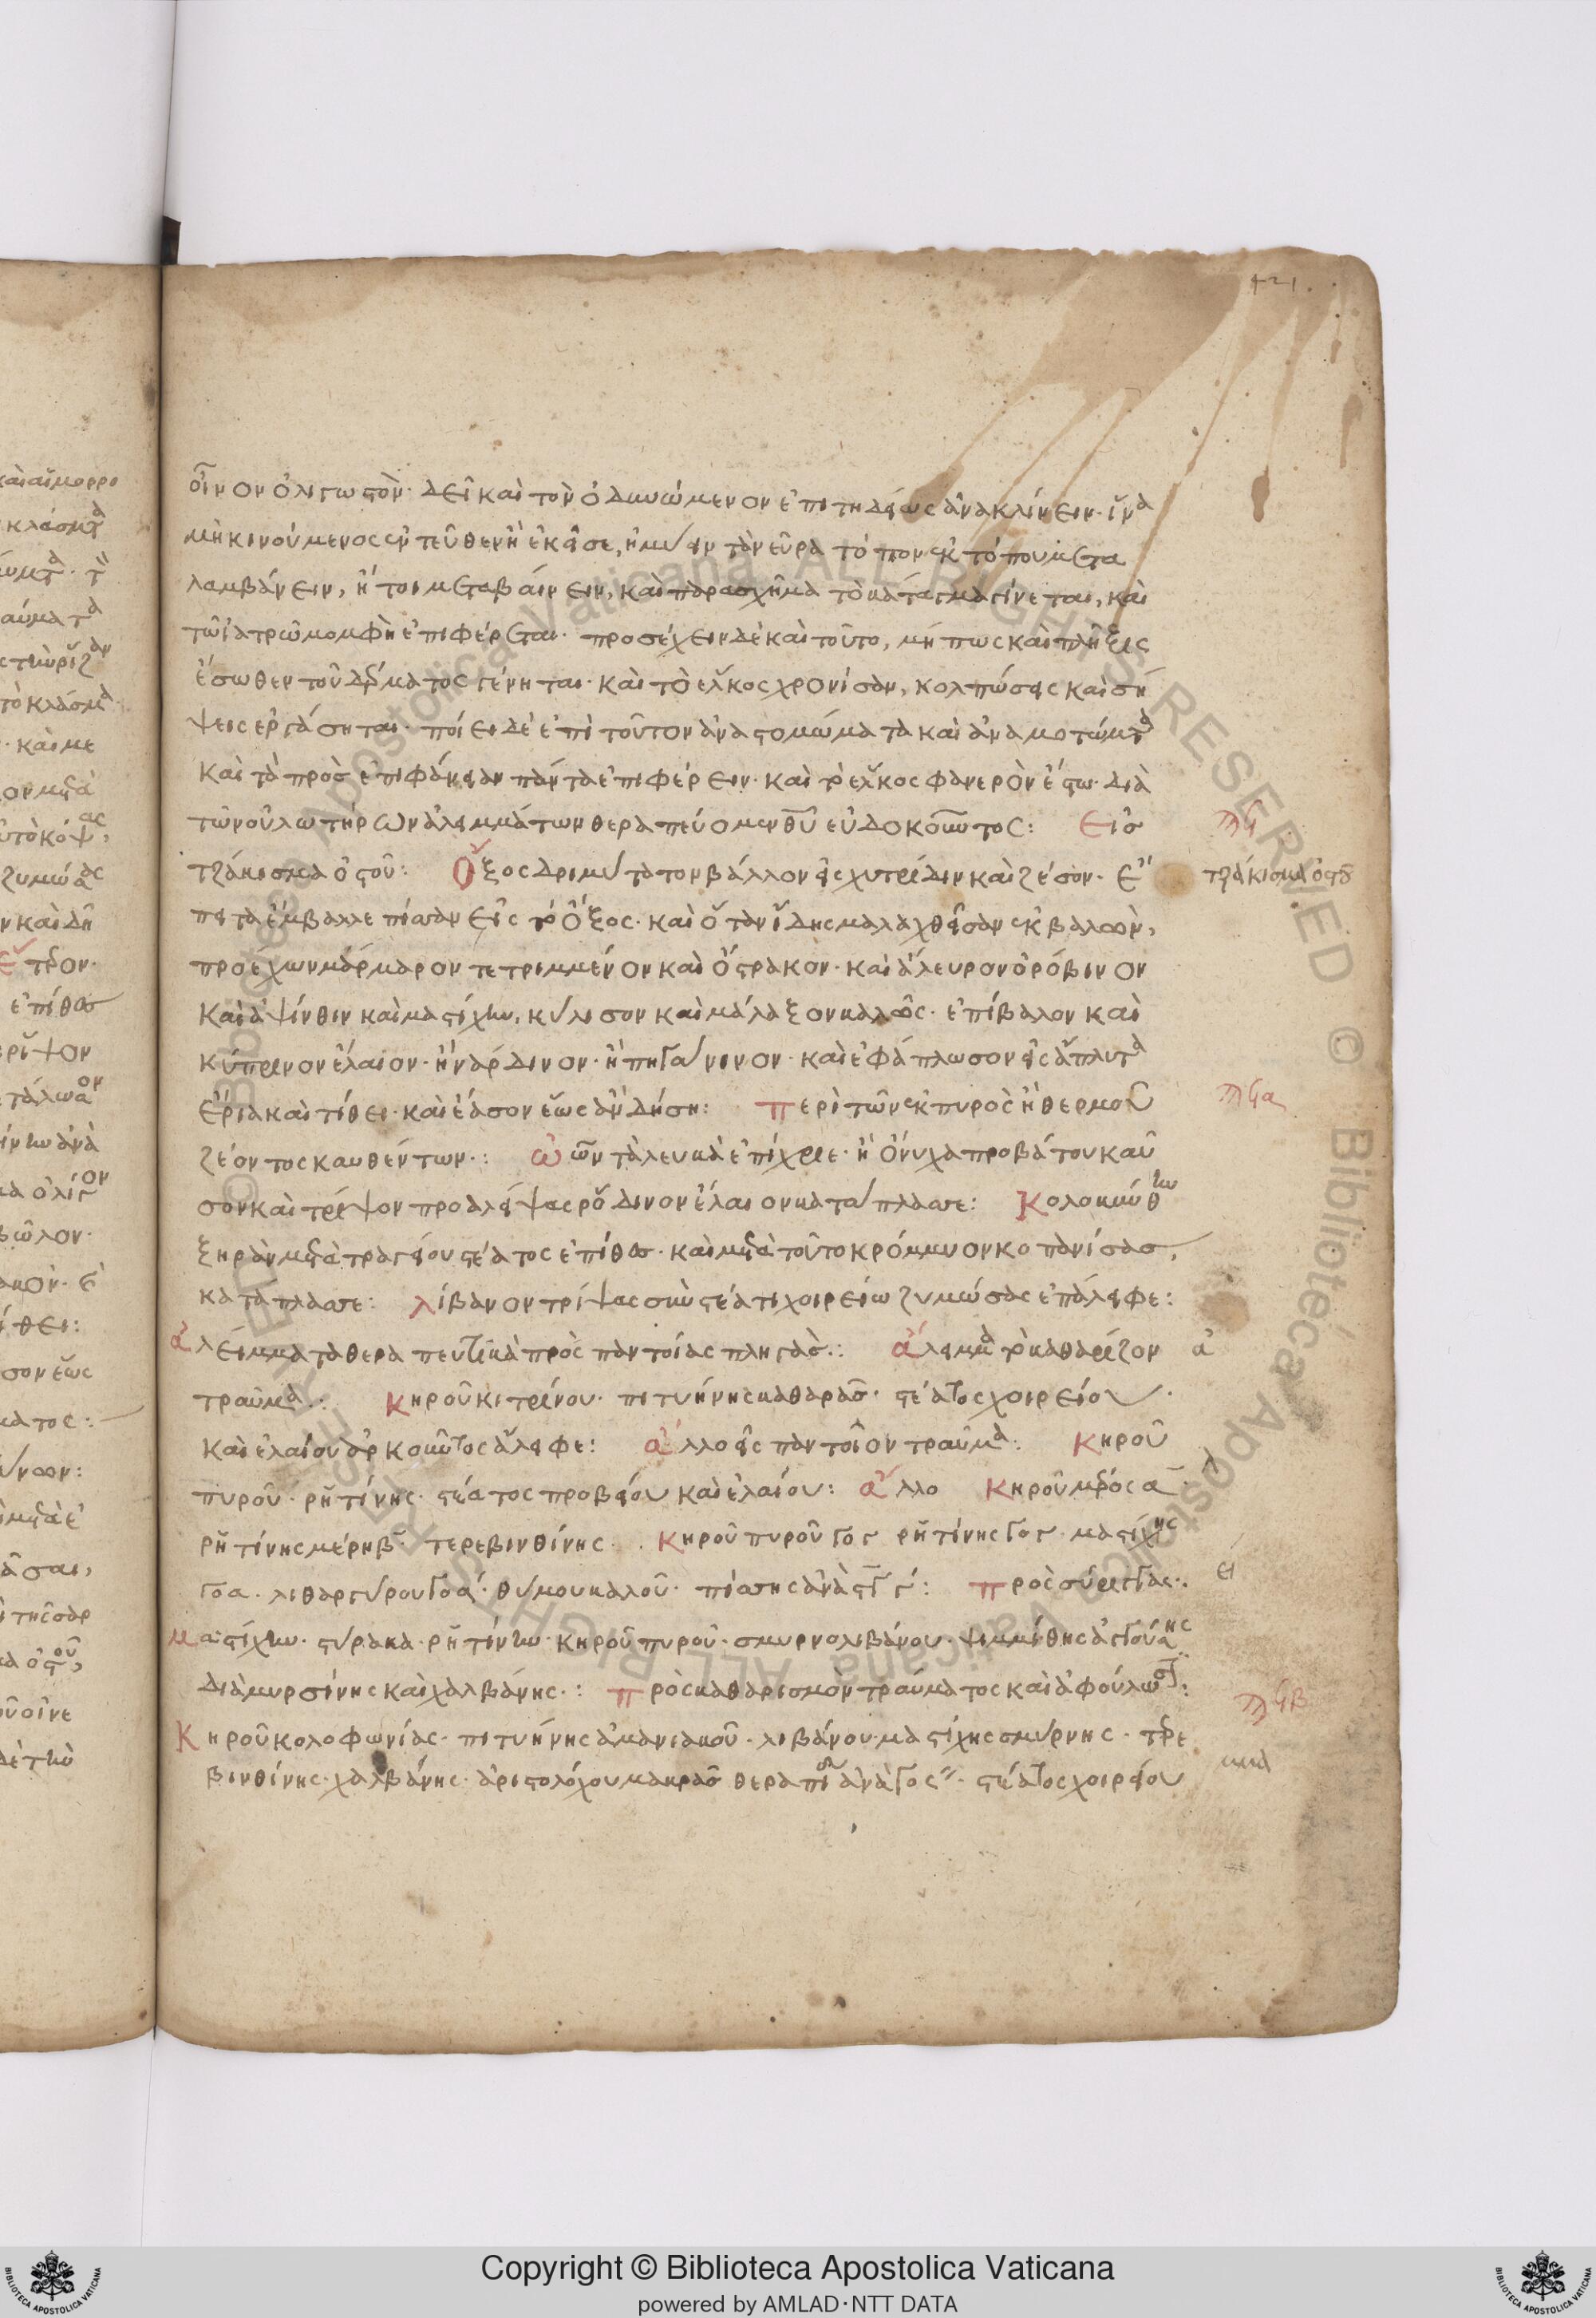 οἶνον ὀλιγωστὸν· δεῖ καὶ τὸν ὀδυνώμενον ἐπιτηδείως ἀνακλίνειν· ἵνα
μὴ κινούμενος ἐντεῦθεν ἢ ἐκεῖσε, τόπον ἐκ τόπου μετα
λαμβάνειν, ἤτοι μεταβαίνειν, καὶ παρασχῆμα τὸ κάταγμα γίνεται, καὶ
τῶ ἰατρῶ μομφὴ ἐπιφέρεται· προσέχειν δὲ καὶ τοῦτο, μήπως καὶ πλῆξις
ἔσωθεν τοῦ δέρματος γένηται· καὶ τὸ ἕλκος χρονίσαν, κολπώσεις καὶ σή
ψεις ἐργάσηται· ποίει δὲ ἐπὶ τοῦτον ἀναστομώματα καὶ ἀναμοτώματα
καὶ τὰ πρὸς ἐπιφάνειαν πάντα ἐπιφέρειν· καὶ τὸ ἕλκος φανερὸν ἔστω· διὰ
τῶν οὐλωτήρων ἀλειμμάτων θεραπεύομεν θεοῦ εὐδοκοῦντος: Εἰσ
τζάκισμα ὀστοῦ: Ὄξος δριμύτατον βάλλον εἰς χυτρίδιν καὶ ζέσον· ἔ
πιτα ἔμβαλλε πίσσαν εἰς τὸ ὄξος· καὶ ὅταν ἴδης μαλαχθεῖσαν ἐκβαλὼν,
προέχων μάρμαρον τετριμμένον καὶ ὄστρακον· καὶ ἄλευρον ὀρόβινον
καὶ ἀψίνθιν καὶ μαστίχην, κύλισον καὶ μάλαξον καλῶς· ἐπίβαλον καὶ
κύπρινον ἔλαιον· ἢ νάρδινον· ἢ πηγάνινον· καὶ ἐφάπλωσον εἰς ἄπλυτα
ἔρια καὶ τίθει· καὶ ἔασον ἕως ἂν δήση: Περὶ τῶν ἐκ πυρὸς ἢ θερμοῦ
ζέοντος καυθέντων: Ὠῶν τὰ λευκὰ ἐπίχριε· ἢ ὄνυχα προβάτου καῦ
σον καὶ τρίψον προαλείψας ῥόδινον ἔλαιον κατάπλασσε: Κολοκύνθην
ξηρὰν μετὰ τραγείου στέατος ἐπίθες· καὶ μετὰ τοῦτο κρόμμυον κοπανίσας,
κατάπλασσε: Λίβανον τρίψας σὺν στέατι χοιρείω ζυμώσας ἐπάλειφε:
Ἀλείμματα θεραπευτικὰ πρὸς παντοίας πληγάς: Ἄλειμμα τὸ καθαρίζον
τραῦμα: Κηροῦ κιτρίνου· πιτυήνης καθαρᾶς· στέατος χοιρείου·
καὶ ἐλαίου ἀρκοῦντος ἄλειφε: Ἄλλο εἰς παντοῖον τραῦμα: Κηροῦ
πυροῦ· ῥητίνης· στέατος προβείου καὶ ἐλαίου: Ἄλλο Κηροῦ μέρος α·
ῥητίνης μέρη β· τερεβινθίνης· Κηροῦ πυροῦ ῥητίνης μαστίχης
λιθαργύρου θύμου καλοῦ· πίσσης ἀνὰ Πρὸς σύριγγας:
μαστίχην· στύρακα· ῥητίνην· κηροῦ πυροῦ· σμυρνολιβάνου· ψιμμίθης
διὰ μυρσίνης καὶ χαλβάνης: Πρὸς καθαρισμὸν τραύματος καὶ ἀφούλωσιν:
Κηροῦ κολοφωνίας· πιτυήνης ἀμανιακοῦ· λιβάνου μαστίχης σμύρνης· τερε
βινθίνης· χαλβάνης· ἀριστολόχου μακρᾶς ἀνὰ στέατος χοιρείου
Ϟ
τζάκισμα ὀστοῦ
Ϟα
α
Ϟβ
421
Copyright © Biblioteca Apostolica Vaticana
powered by AMLAD·NTT DATA